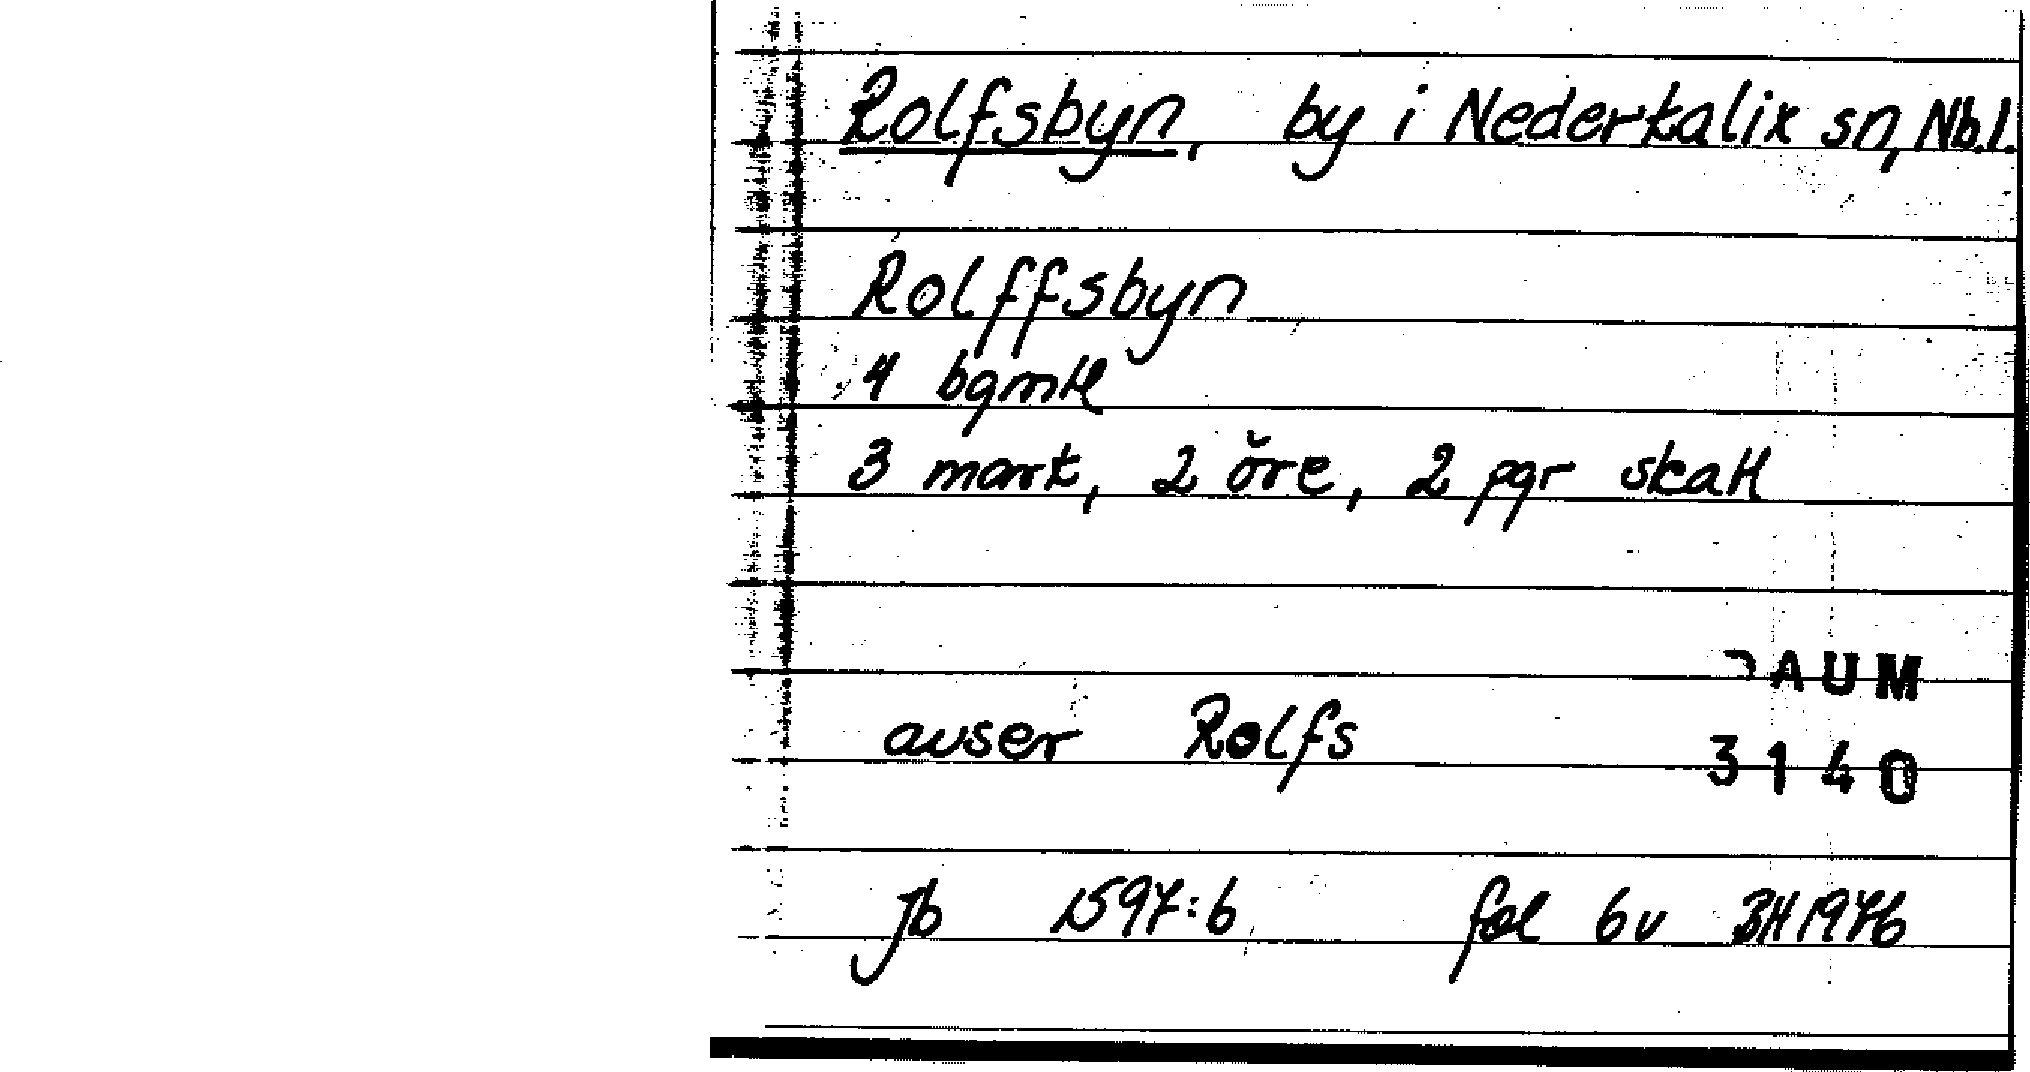 Rolfsbyn, by i Nederkalix sn, Nb.l.
Rolffsbyn
4 bgmtl
3 mark, 2 öre, 2 pgr skatt
DAUM
avser Rolfs
3140
Jb 1597:6 fol 6v BH 1976